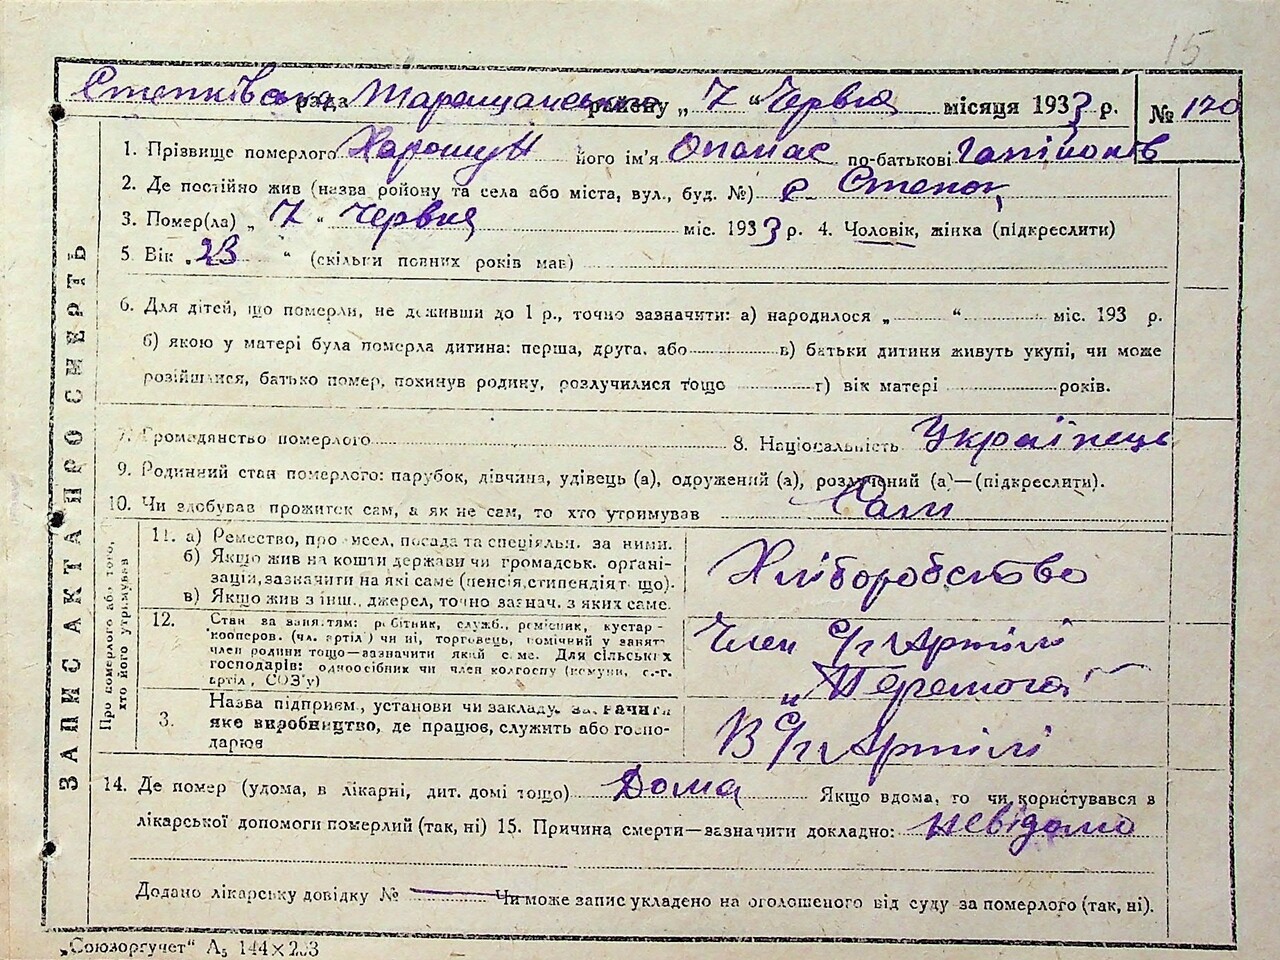 15
Степківська рада Таращанського району „ 7 “ Червня місяця 1933 р. № 120
1. Прізвище померлого Харошун його ім'я Опанас по-батькові
2. Де постійно жив (назва ройону та села або міста, вул., буд. №) с Степок
3. Помер(ла) „ 7 “ Червня міс. 1933 р. 4. Чоловік, жінка (підкреслити)
5 Вік „ 23 “ (скільки повних років мав)
6. Для дітей, що померли, не доживши до 1 р., точно зазначити: а) народилося „ “ міс. 193 р.
б) якою у матері була померла дитина: перша, друга, або в) батьки дитини живуть укупі, чи може
розійшлися, батько помер, покинув родину, розлучилися тощо г) вік матері років.
7. Громадянство померлого 8. Національність Українець
9. Родинний стан померлого: парубок, дівчина, удівець (а), одружений (а), розлучений (а)—(підкреслити).
10. Чи здобував прожиток сам, а як не сам, то хто утримував Сам
ЗАПИС АКТА ПРО СМЕРТЬ
Про померлого або того, хто його утримував
11. а) Ремество, промисел, посада та спеціяльн. за ними.
б) Якщо жив на кошти держави чи громадськ. орґані-
зацій, зазначити на які саме (пенсія, стипендія т що).
в) Якщо жив з інш., джерел, точно зазнач. з яких саме.
Хліборобство
12. Стан за занятям: робітник, служб., ремісник, кустар-
кооперов. (чл. артіл) чи ні, торговець, помічний у занят
член родини тощо—зазначити який саме. Для сільських
господарів: одноосібних чи член колгоспу (комуни, с.-г.
артіл, СОЗ'у)
Член С/г Артілі
„Перемога“
3. Назва підприєм., установи чи закладу, зазначити
яке виробництво, де працює, служить або госпо-
дарює
В С/г Артілі
14. Де помер (удома, в лікарні, дит. домі тощо) Дома Якщо вдома, то чи користувався в
лікарської допомоги померлий (так, ні) 15. Причина смерти—зазначити докладно: невідомо
Додано лікарську довідку № Чи може запис укладено на оголошеного від суду за померлого (так, ні).
„Союзоргучет“ А5 144×203